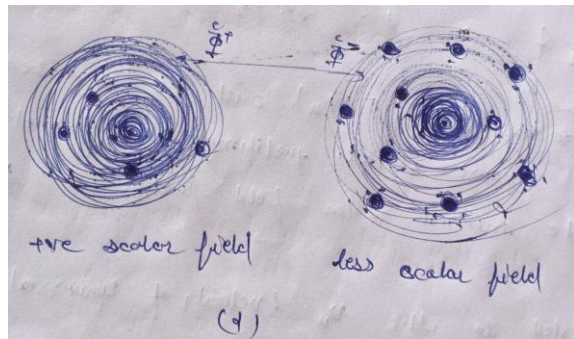 +ve scalar field
less scalar field
(d)